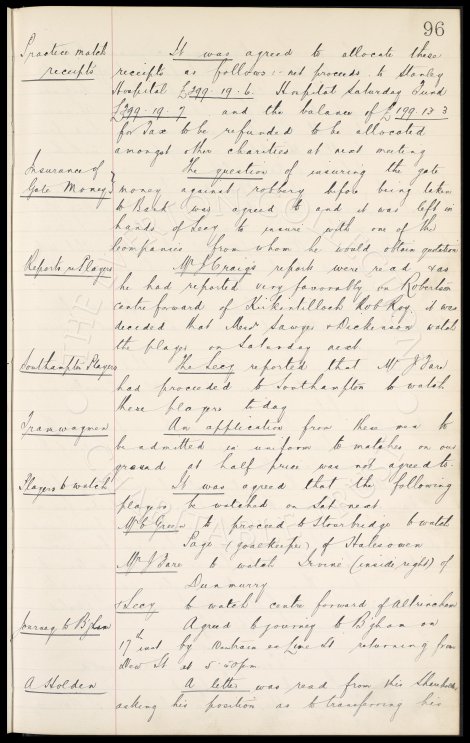 96
Practice match It was agreed to allocate these
receipts receipts as follows :- net proceeds to Stanley
Hospital £399.19.6. Hospital Saturday Fund
£399.19.7 and the balance of £199.13.3
for Tax to be refunded to be allocated
amongst other charities at next meeting
Insurance of The question of insuring the gate
Gate Money money against robbery before being taken
to Bank was agreed to and it was left in
hands of Secy to insure with one of the
Companies from whom he would obtain quotation
Reports re Players Mr J Craig's reports were read & as
he had reported very favorably on Robertson
centre forward of Kirkintilloch Rob Roy, it was
decided that Messrs Sawyer & Dickenson watch
the player on Saturday next
Southampton Players The Secy reported that Mr J Fare
had proceeded to Southampton to watch
these players to day
Tramwaymen An application from these men to
be admitted in uniform to matches on our
ground at half price was not agreed to.
Players to watch It was agreed that the following
players be watched on Sat next.
Mr C Green to proceed to Stourbridge to watch
Page (goalkeeper) of Halesowen
Mr J Fare to watch Irvine (inside right) of
Dunmurry
& Secy to watch centre forward of Altrincham
Journey to B'ham Agreed to journey to B'ham on
17th inst by train ex Lime St returning from
New St at 5.50pm
A Holden A letter was read from this Shareholder
asking his position as to transferring his